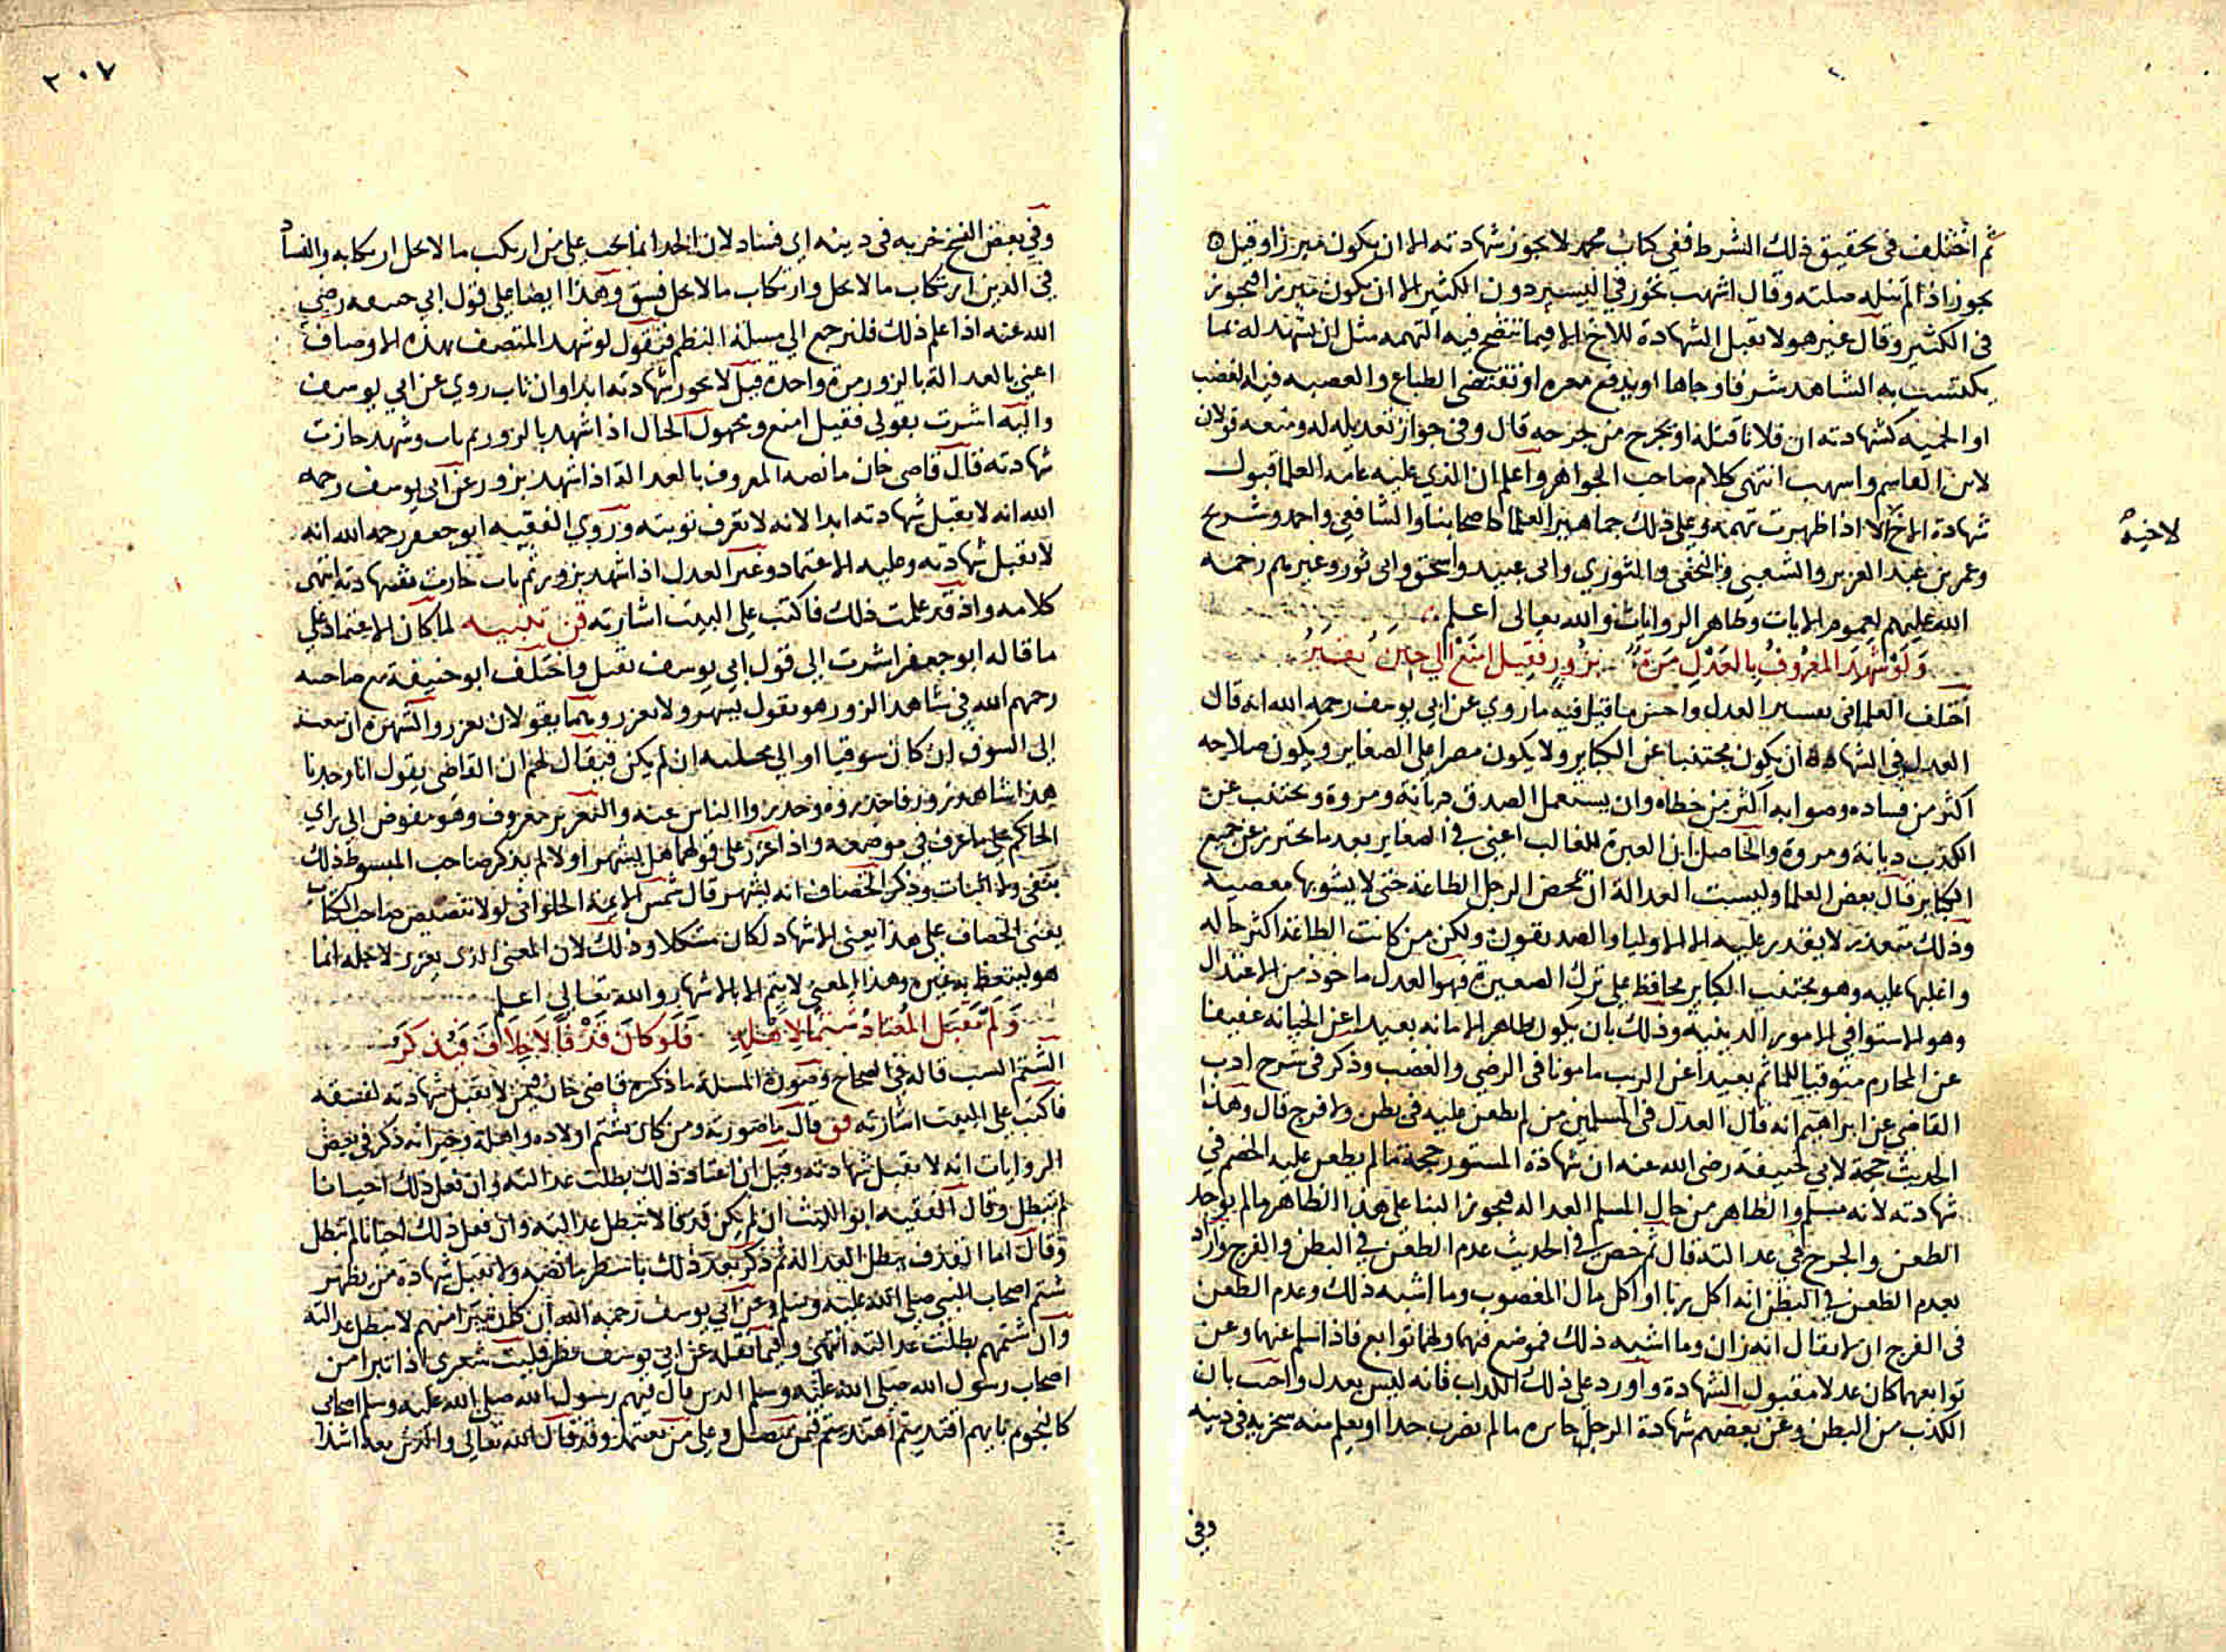 ثم اختلف في تحقيق ذلك الشرط ففي كتاب محمد لا تجوز شهادته الا ان يكون مبرزا وقيل
تجوز اذا لم تنله صلته وقال اشهب تجوز في اليسير دون الكثير الا ان يكون مبرزا فتجوز
في الكثير وقال غير هو لا تقبل الشهادة للاخ الا فيما تتضح فيه التهمه مثل ان يشهد له بما
يكتسب به الشاهد شرفا وجاها او يدفع معره او تقتضي الطباع والعصبيه فيه الغضب
او الحميه كشهادته ان فلانا قتله او بجرح من جرحه قال وفي جواز تعديله له ومنعه قولان
لابن القاسم واشهب انتهى كلام صاحب الجواهر واعلم ان الذي عليه عامة العلما قبول
شهادة الاخ الا اذا ظهرت تهمه وعلى ذلك جماهير العلما كاصحابنا والشافعي واحمد وشريح
لاخيه
وعمر بن عبد العزيز والشعبي والنخعي والثوري وابي عبيد واسحق وابي ثور وغيرهم رحمة
الله عليهم لعموم الايات وظاهر الروايات والله تعالى اعلم
وَلَوْ شَهِدَ المعْرُوفُ بِالعَدْلِ مَرَّةً بزُورٍ فَقِيلَ امْنَعْ اِلى حِيْنَ
اختلف العلما في تفسير العدل واحسن ما قيل فيه ما روي عن ابي يوسف رحمه الله انه قال
العدل في الشهادة ان يكون مجتنبا عن الكباير ولا يكون مصرا على الصغاير ويكون صلاحه
اكثر من فساده وصوابه اكثر من خطاه وان يستعمل الصدق ديانة ومروة ويجتنب عن
الكذب ديانة ومروة والحاصل ان العبرة للغالب اعني في الصغاير بعد ما تحترز عن جميع
الكباير قال بعض العلما وليست العدالة ان يمحض الرجل الطاعة حتى لا يشوبها معصيه
وذلك متعذر لا يقدر عليه الا الاوليا والصديقون ولكن من كانت الطاعة اكثر حاله
واغلبها عليه وهو مجتنب الكباير محافظ على ترك الصغيرة فهو العدل ماخوذ من الاعتدال
وهو الاستوا في الامور الدينية وذلك بان يكون ظاهر الامانه بعيدا عن الخيانه عفيفا
عن المحارم متوقيا للماثم بعيدا عن الريب مامونا في الرضى والغضب وذكر في شرح ادب
القاضي عن ابراهيم انه قال العدل في المسلمين من لم يطعن عليه في بطن ولا فرج قال وهذا
الحديث حجة لابي حنيفة رضي الله عنه ان شهادة المستور حجة ما لم يطعن عليه الخصم في
شهادته لانه مسلم والظاهر من حال المسلم العداله فيجوز البنا على هذا الظاهر ما لم يوجد
الطعن والجرح في عدالته قال ثم خص في الحديث عدم الطعن في البطن والفرج واراد
بعدم الطعن في البطن انه اكل ربا او اكل مال المغصوب وما اشبه ذلك وعدم الطعن
في الفرج ان لا يقال انه زان وما اشبه ذلك فموضع فيهما ولهما توابع فاذا سلم عنهما وعن
توابعهما كان عدلا مقبول الشهادة واورد على ذلك الكذاب فانه ليس بعدل واجيب بان
الكذب من البطن وعن بعضهم شهادة الرجل جايزه ما لم يضرب حدا او يعلم منه خربه في دينه
وفي
٢٠٧
وفي بعض النسخ خربه في دينه اي فساد لان الحد انما يجب على من ارتكب ما لا يحل ارتكابه والفساد
في الدين ارتكاب ما لا يحل وارتكاب ما لا يحل فسق وهذا ايضا على قول ابي حنيفه رضي
الله عنه اذا علم ذلك فلنرجع الى مسلة النظم فنقول لو شهد المتصف بهذه الاوصاف
اعني بالعدالة بالزور مرة واحدة قيل لا تجوز شهادته ابدا وان تاب روي عن ابي يوسف
واليه اشرت بقولي فقيل امنع ومجهول الحال اذا شهد بالزور ثم تاب وشهد جازت
شهادته قال قاضي خان ما نصه المعروف بالعدالة اذا شهد بزور عن ابي يوسف رحمه
الله انه لا تقبل شهادته ابدا لانه لا تعرف توبته وروي الفقيه ابو جعفر رحمه الله انه
لا تقبل شهادته وعليه الاعتماد وغير العدل اذا شهد بزور ثم تاب جازت شهادته انتهى
كلامه واذ قد علمت ذلك فاكتب على البيت اشارته قن تنبيه لما كان الاعتماد على
ما قاله ابو جعفر اشرت الى قول ابي يوسف بقيل واختلف ابو حنيفة مع صاحبيه
رحمهم الله في شاهد الزور هو يقول يشهر ولا يعزر وهما يقولان يعزر والشهرة ان يبعث
الى السوق ان كان سوقيا او الى محلته ان لم يكن فيقال لهم ان القاضي يقول انا وجدنا
هذا شاهد زور فاحذروه وحذروا الناس عنه والتعزير معروف وهو مفوض الى راي
الحاكم على ما عرف في موضعه واذا عزر على قولهما هل يشهر او لا لم يذكر صاحب المبسوط ذلك
بنفي ولا اثبات وذكر الخصاف انه يشهر قال شمس الايمة الحلواني لولا تنصيص صاحب الكتاب
يعني الخصاف على هذا يعني الاشهاد لكان مشكلا وذلك لان المعنى الذي يعزر لاجله انما
هو ليتعظ به غيره وهذا المعنى لا يتم الا بالاشهار والله تعالى اعلم
وَلَمْ تَقْبَلِ المُعْتادُ شَتْمًا لِاَهْلِهِ فَلَو كانَ قَذْفًا لَا خِلَافَ
الشتم السب قاله في الصحاح وصورة المسلة ما ذكره قاضي خان فيمن لا تقبل شهادته لفسقه
فاكتب على البيت اشارته فق قال ما صورته ومن كان يشتم اولاده واهله وجيرانه ذكر في بعض
الروايات انه لا تقبل شهادته وقيل ان اعتاد ذلك بطلت عدالته وان فعل ذلك احيانا
لم تبطل وقال الفقيه ابو الليث ان لم يكن قذفا لا تبطل عدالته وان فعل ذلك احيانا لم تبطل
وقال اما القذف يبطل العدالة ثم ذكر بعد ذلك باسطر ما نصه ولا تقبل شهادة من يظهر
شتم اصحاب النبي صلى الله عليه وسلم وعن ابي يوسف رحمه الله ان كل متبرا منهم لا تبطل عدالته
وان شتمهم بطلت عدالته انتهى وفيما نقله عن ابي يوسف نظر فليت شعري اذا تبرا من
اصحاب رسول الله صلى الله عليه وسلم الذين قال فيهم رسول الله صلى الله عليه وسلم اصحابي
كالنجوم بايهم اقتديتم اهتديتم فمن وعلى من يعتمد وقد قال الله تعالى والذين معه اشدا